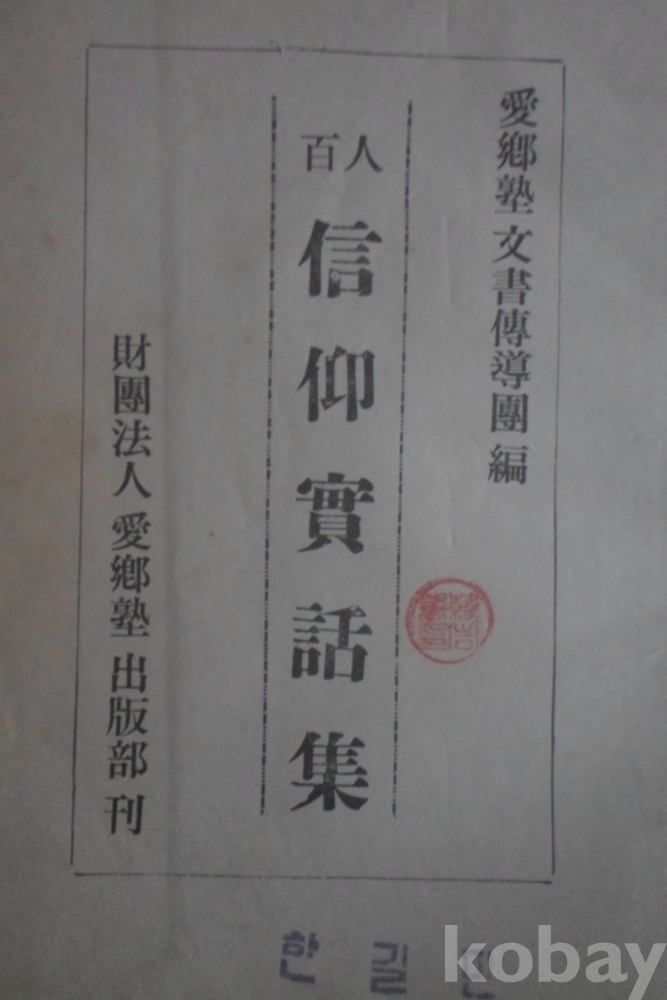 愛鄕塾 文書傳導團 編
百人
信仰實話集
財團法人 愛鄕塾 出版部 刊
한 길
kobay